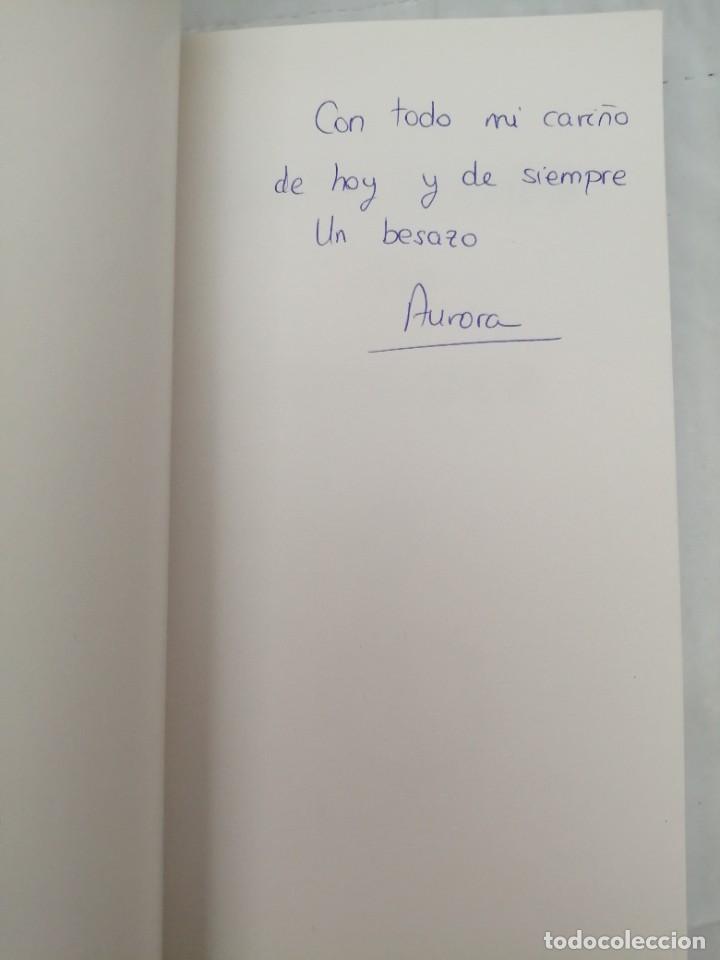 Con todo mi cariño
de hoy y de siempre
Un besazo
Aurora
todocoleccion